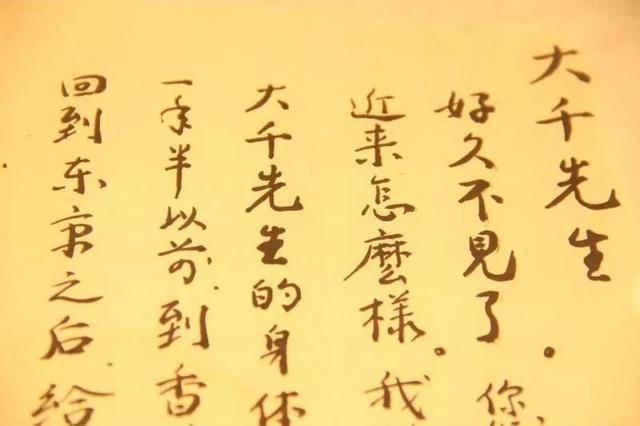 大千先生
好久不見了。你
近来怎麼様。我
大千先生的身体
一年半以前到香
回到东京之后给